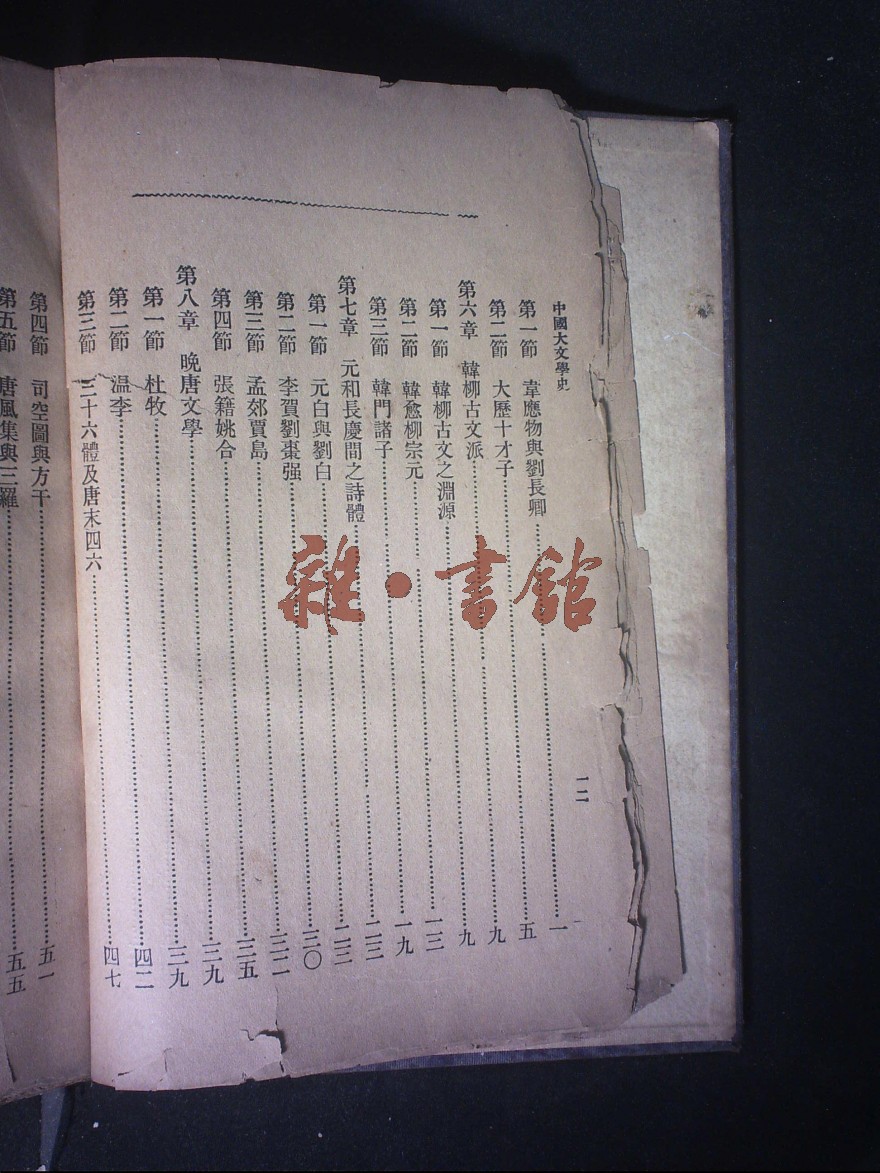 中國大文學史
一二
第一節 韋應物與劉長卿……一
第二節 大歷十才子……五
第六章 韓柳古文派……九
第一節 韓柳古文之淵源……九
第二節 韓愈柳宗元……一三
第三節 韓門諸子……一九
第七章 元和長慶間之詩體……二三
第一節 元白與劉白……二三
第二節 李賀劉棗强……三〇
第三節 孟郊賈島……三二
第四節 張籍姚合……三五
第八章 晚唐文學……三九
第一節 杜牧……三九
第二節 温李……四二
第三節 三十六體及唐末四六……四七
第四節 司空圖與方干……五一
第五節 唐風集與三羅……五五
雜·書館